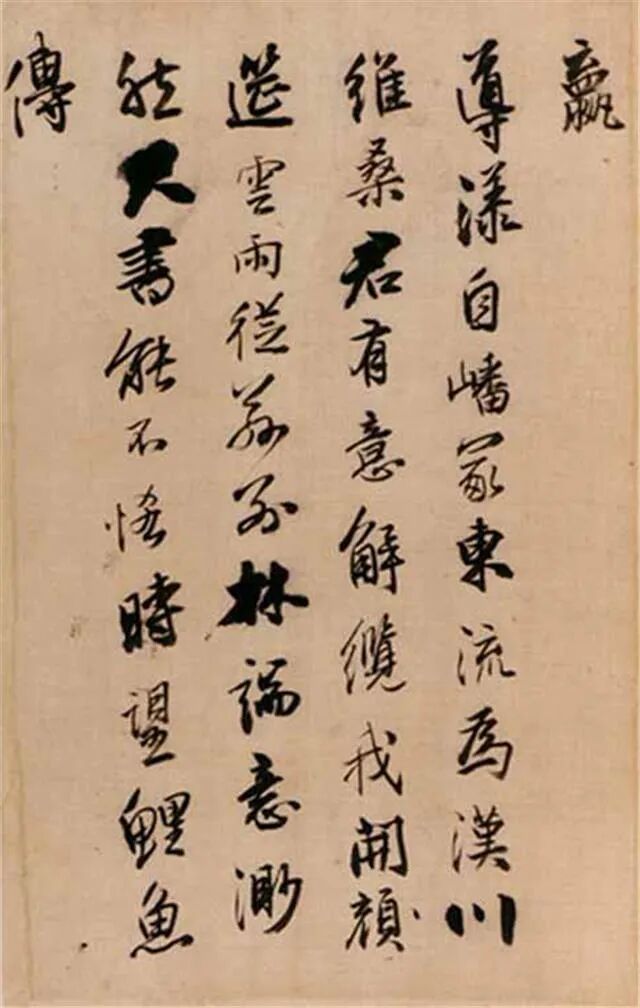 導漾自嶓冢東流為漢川
維桑君有意解纜我開顏
筵雲雨從茲別林端意渺
然尺書能不悋時望鯉魚
傳